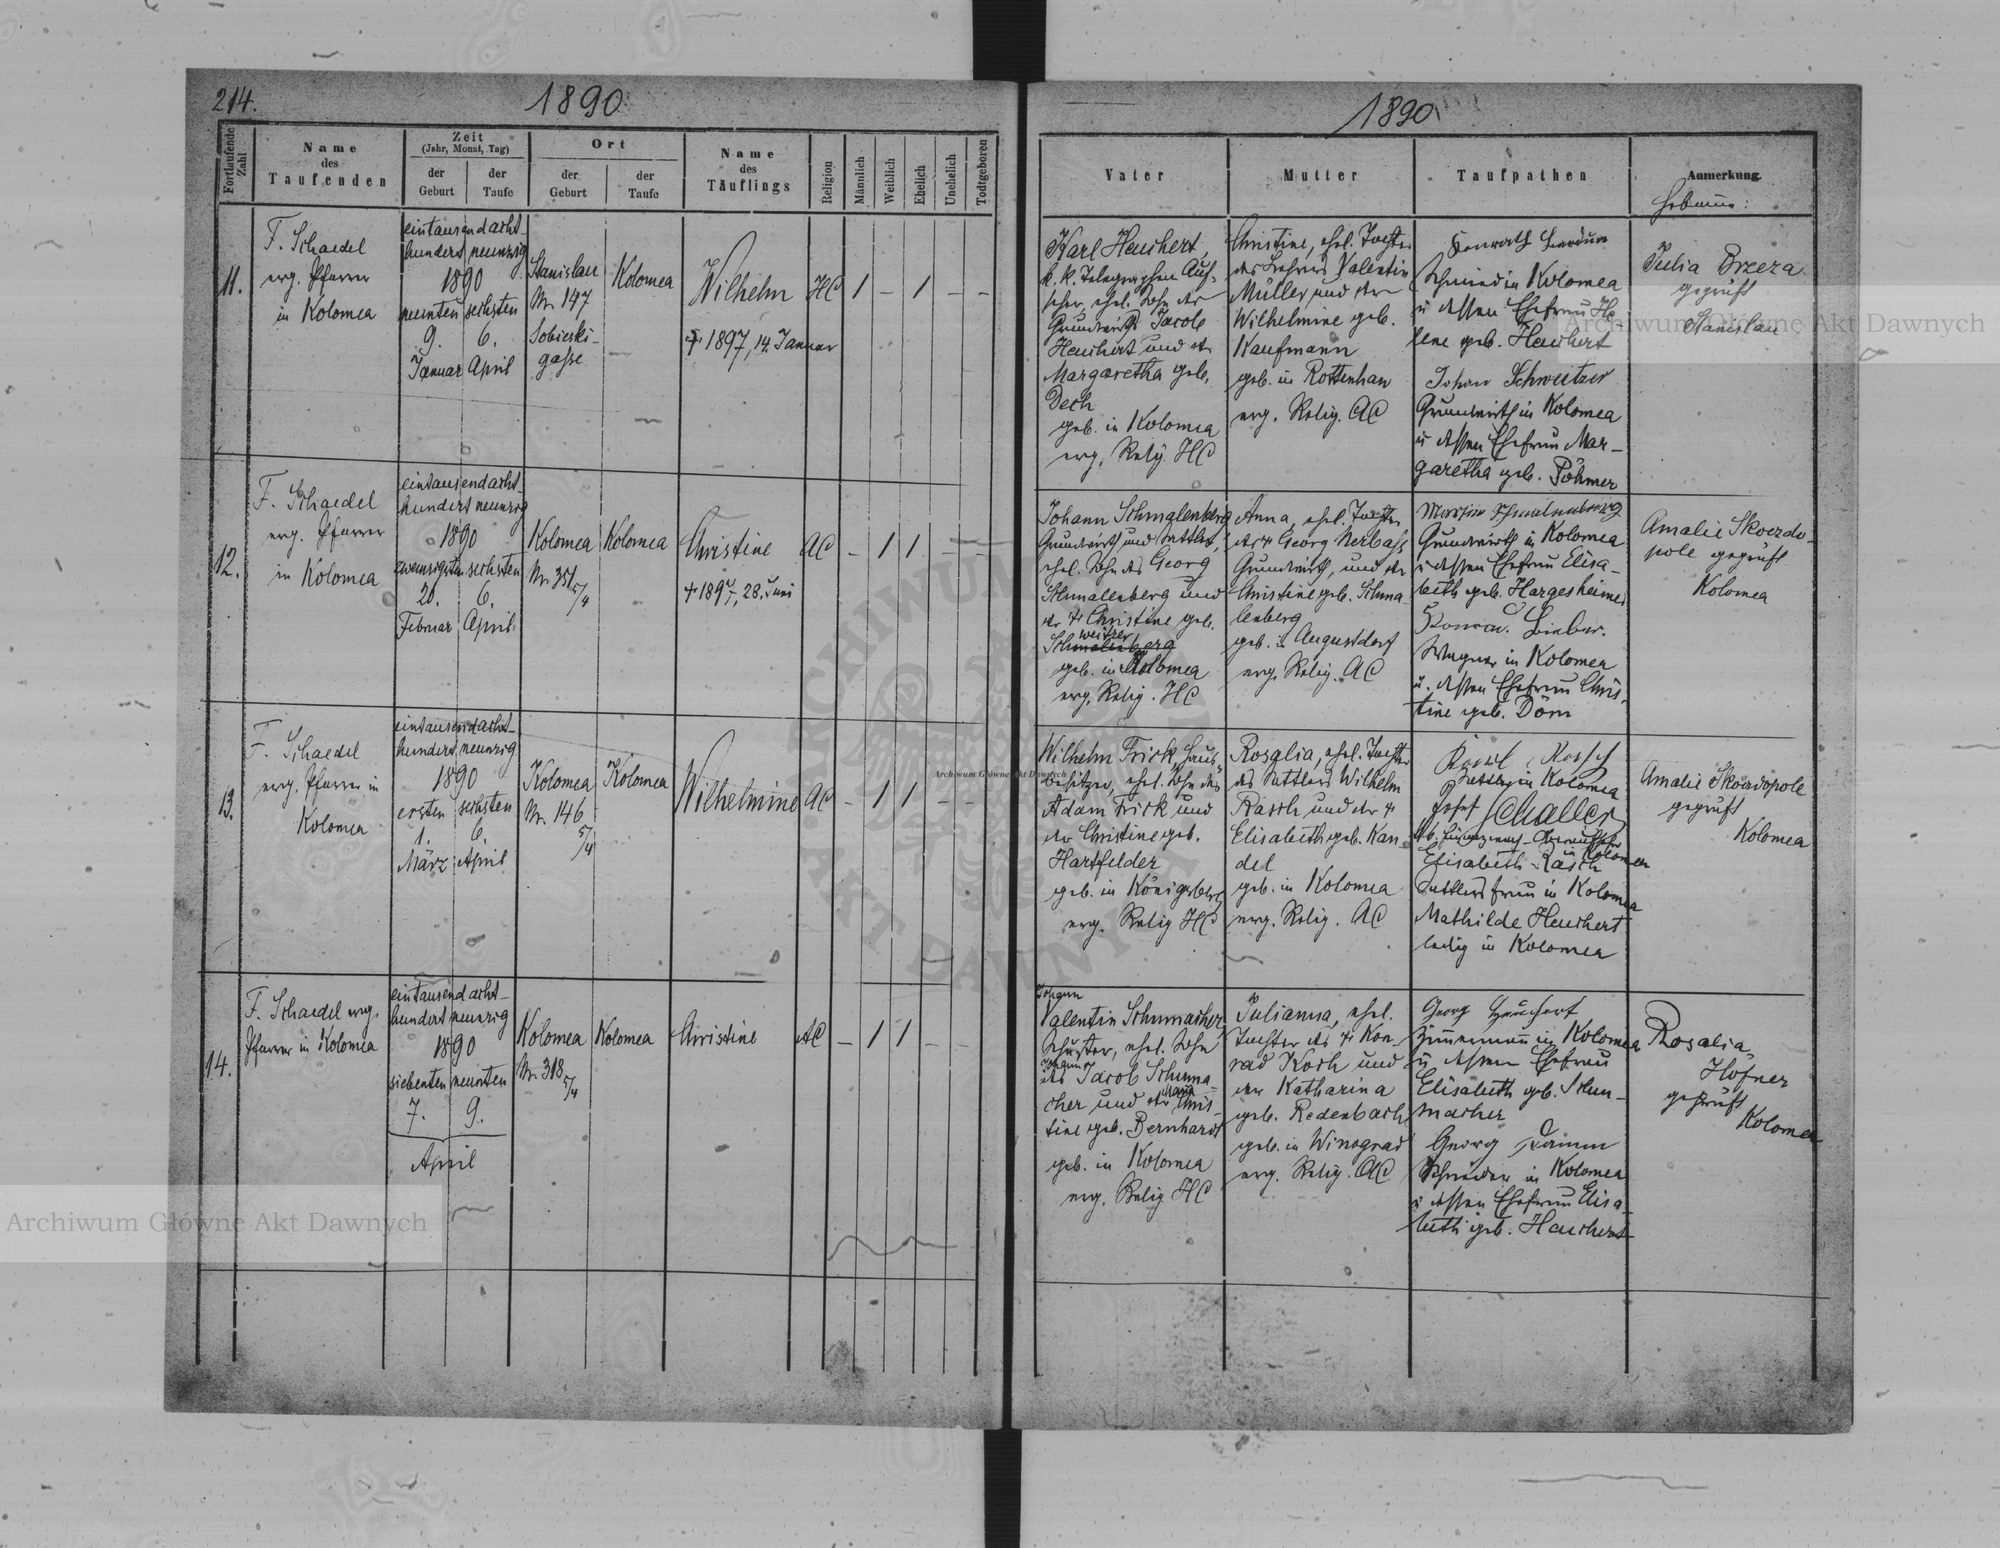 214.
1890
Fortlaufende Zahl
Name
des
Taufenden
Zeit
(Jahr, Monat, Tag)
der
Geburt
der
Taufe
Ort
der
Geburt
der
Taufe
Name
des
Täuflings
Religion
Männlich
Weiblich
Ehelich
Unehelich
Todtgeboren
11.
F. Schaedel
evg. Pfarrer
in Kolomea
eintausendacht-
hundert neunzig
1890
neunten sechsten
9. 6.
Januar April
Stanislau
Nr. 147
Sobieski-
gasse
Kolomea
Wilhelm
† 1897, 14. Januar
HC 1 – 1 – –
12.
F. Schaedel
evg. Pfarrer
in Kolomea
eintausendacht-
hundert neunzig
1890
zwanzigsten sechsten
20. 6.
Februar April
Kolomea
Nr. 351
5/4
Kolomea
Christine
† 1897, 28. Juni
AC – 1 1 – –
13.
F. Schaedel
evg. Pfarrer in
Kolomea
eintausendacht-
hundert neunzig
1890
ersten sechsten
1. 6.
März April
Kolomea
Nr. 146
5/4
Kolomea
Wilhelmine
AC – 1 1 – –
14.
F. Schaedel evg.
Pfarrer in Kolomea
eintausendacht-
hundert neunzig
1890
siebenten neunten
7. 9.
April
Kolomea
Nr. 318
5/4
Kolomea
Christine
AC – 1 1 – –
1890
Vater
Mutter
Taufpathen
Anmerkung
Hebamme:
Karl Heuchert,
k. k. Telegraphen Auf-
seher, ehel. Sohn des
Grundwirts Jacob
Heuchert und der
Margaretha geb.
Dech
geb. in Kolomea
evg. Relig HC
Christine, ehel. Tochter
des Lehrers Valentin
Müller und der
Wilhelmine geb.
Kaufmann
geb. in Rottenhan
evg. Relig. AC
Schmied in Kolomea
u dessen Ehefrau He-
lene geb. Heuchert
Johann Schweitzer
Grundwirth in Kolomea
u dessen Ehefrau Mar-
garetha geb. Böhmer
Julia Brzeza
geprüft
Stanislau
Johann Schmalenberg
Grundwirth und Sattler,
ehel. Sohn des Georg
Schmalenberg und
der † Christine geb.
weitzer
Schmalenberg
geb. in Kolomea
evg. Relig. HC
Anna, ehel. Tochter
des † Georg Nerbass
Grundwirth, und der
Christine geb. Schma-
lenberg
geb. in Augustdorf
evg. Relig. AC
Martin Schmalenberg
Grundwirth in Kolomea
u dessen Ehefrau Elisa-
beth geb. Hargesheimer
Wagner in Kolomea
u. dessen Ehefrau Chris-
tine geb. Döm
Amalie Skoerdo-
pole geprüft
Kolomea
Wilhelm Frick, Haus-
besitzer, ehel. Sohn des
Adam Frick und
der Christine geb.
Hartfelder
geb. in Königsberg
evg. Relig HC
Rosalia, ehel. Tochter
des Sattlers Wilhelm
Rasch und der †
Elisabeth geb. Kan-
del
geb. in Kolomea
evg. Relig. AC
Karl Rasch
Sattler in Kolomea
Josef Schaller
in Kolomea
Elisabeth Rasch
Sattlersfrau in Kolomea
Mathilde Heuchert
ledig in Kolomea
Amalie Skoerdopole
geprüft
Kolomea
Johann
Valentin Schumacher
Schuster, ehel. Sohn
Johann
des Jacob Schuma-
cher und der Chris-
tine geb. Bernhardt
geb. in Kolomea
evg. Relig HC
Julianna, ehel.
Tochter des † Kon-
rad Koch und
der Katharina
geb. Redenbach
geb. in Winograd
evg. Relig. AC
Georg Heuchert
Zimmermann in Kolomea
u dessen Ehefrau
Elisabeth geb. Schu-
macher
Georg Damm
Schneider in Kolomea
u dessen Ehefrau Elisa-
beth geb. Heuchert
Rosalia
Höfner
geprüft
Kolomea
Archiwum Główne Akt Dawnych
Archiwum Główne Akt Dawnych
Archiwum Główne Akt Dawnych
ARCHIWUM
AKT DAWNYCH